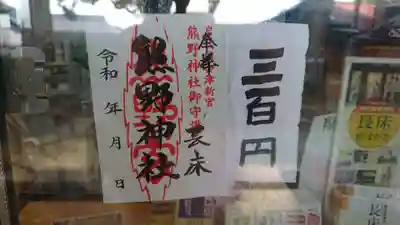 三百円
奉拝
会津新宮
熊野神社御守護
長床
熊野神社
令和 年 月 日
長床